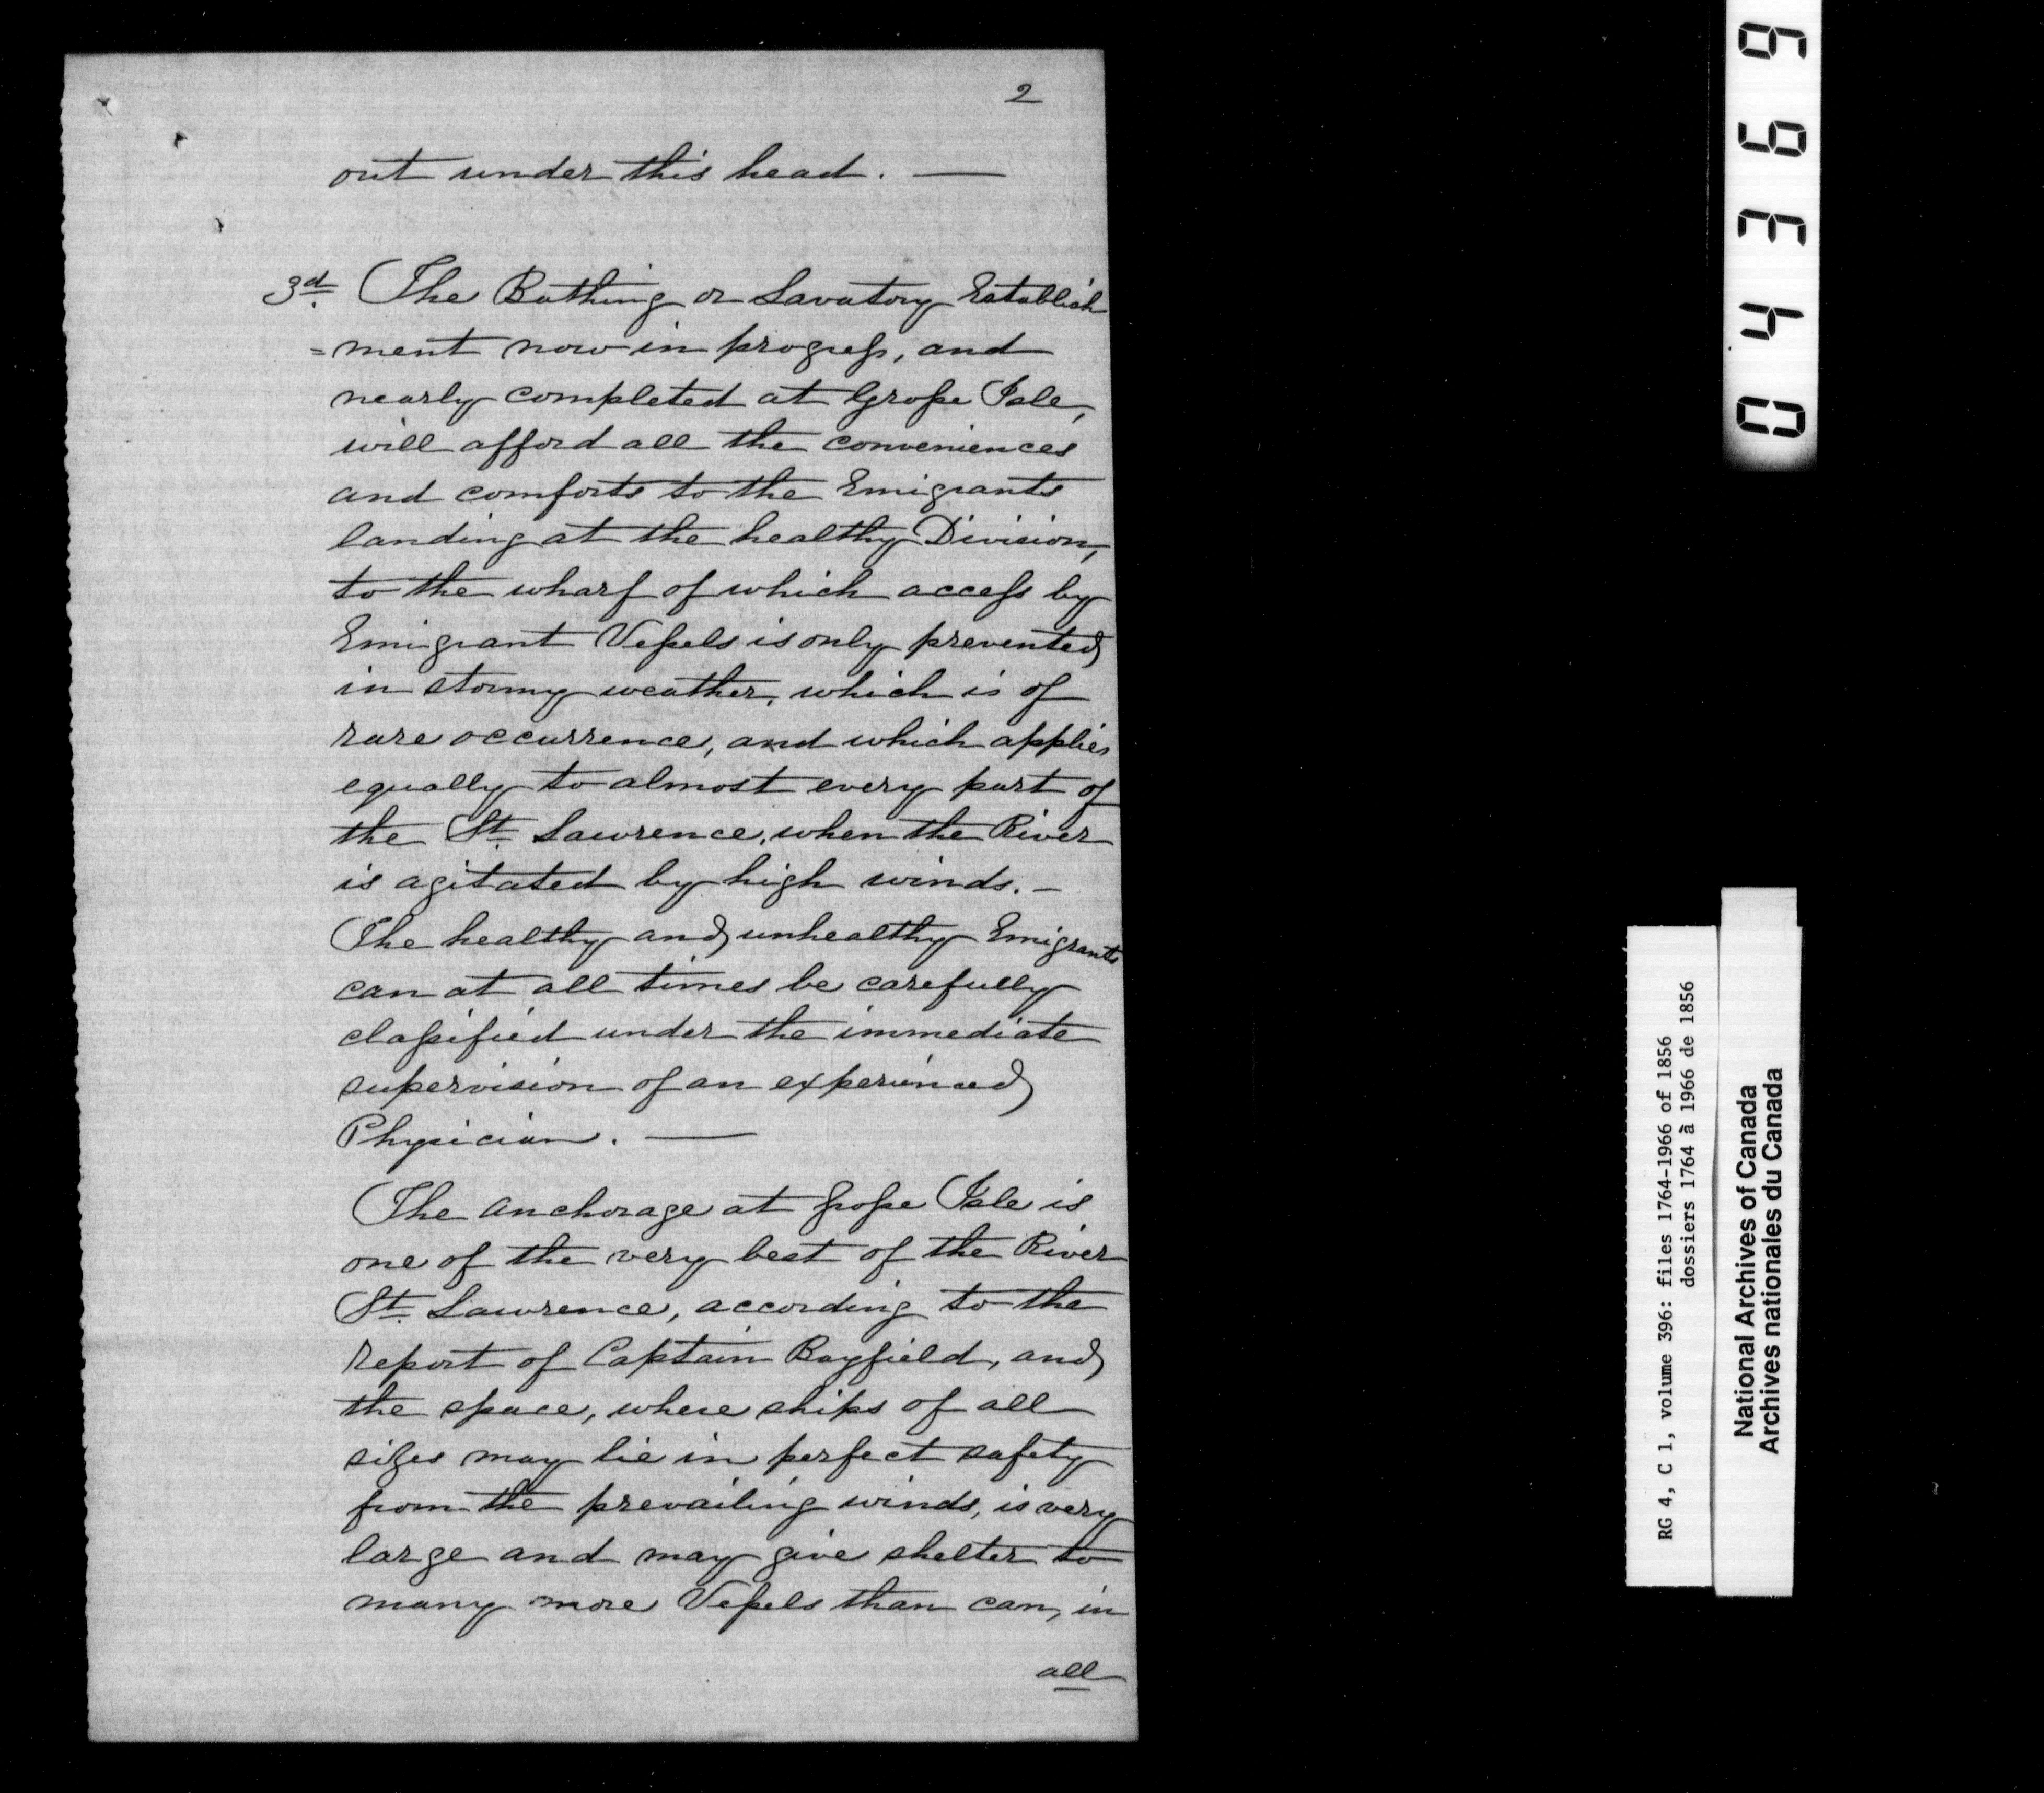 2
out under this head. —
3d. The Bathing or Lavatory Establish
=ment now in progress, and
nearly completed at Grosse Isle,
will afford all the conveniences
and comforts to the Emigrants
landing at the healthy Division,
to the wharf of which access by
Emigrant Vessels is only prevented
in stormy weather, which is of
rare occurrence, and which applies
equally to almost every part of
the St. Lawrence, when the River
is agitated by high winds. —
The healthy and unhealthy Emigrants
can at all times be carefully
classified under the immediate
supervision of an experienced
Physician. —
The anchorage at Grosse Isle is
one of the very best of the River
St. Lawrence, according to the
report of Captain Bayfield, and
the space, where ships of all
sizes may lie in perfect safety
from the prevailing winds, is very
large and may give shelter to
many more Vessels than can, in
all
04369
RG 4, C 1, volume 396: files 1764-1966 of 1856
dossiers 1764 à 1966 de 1856
National Archives of Canada
Archives nationales du Canada